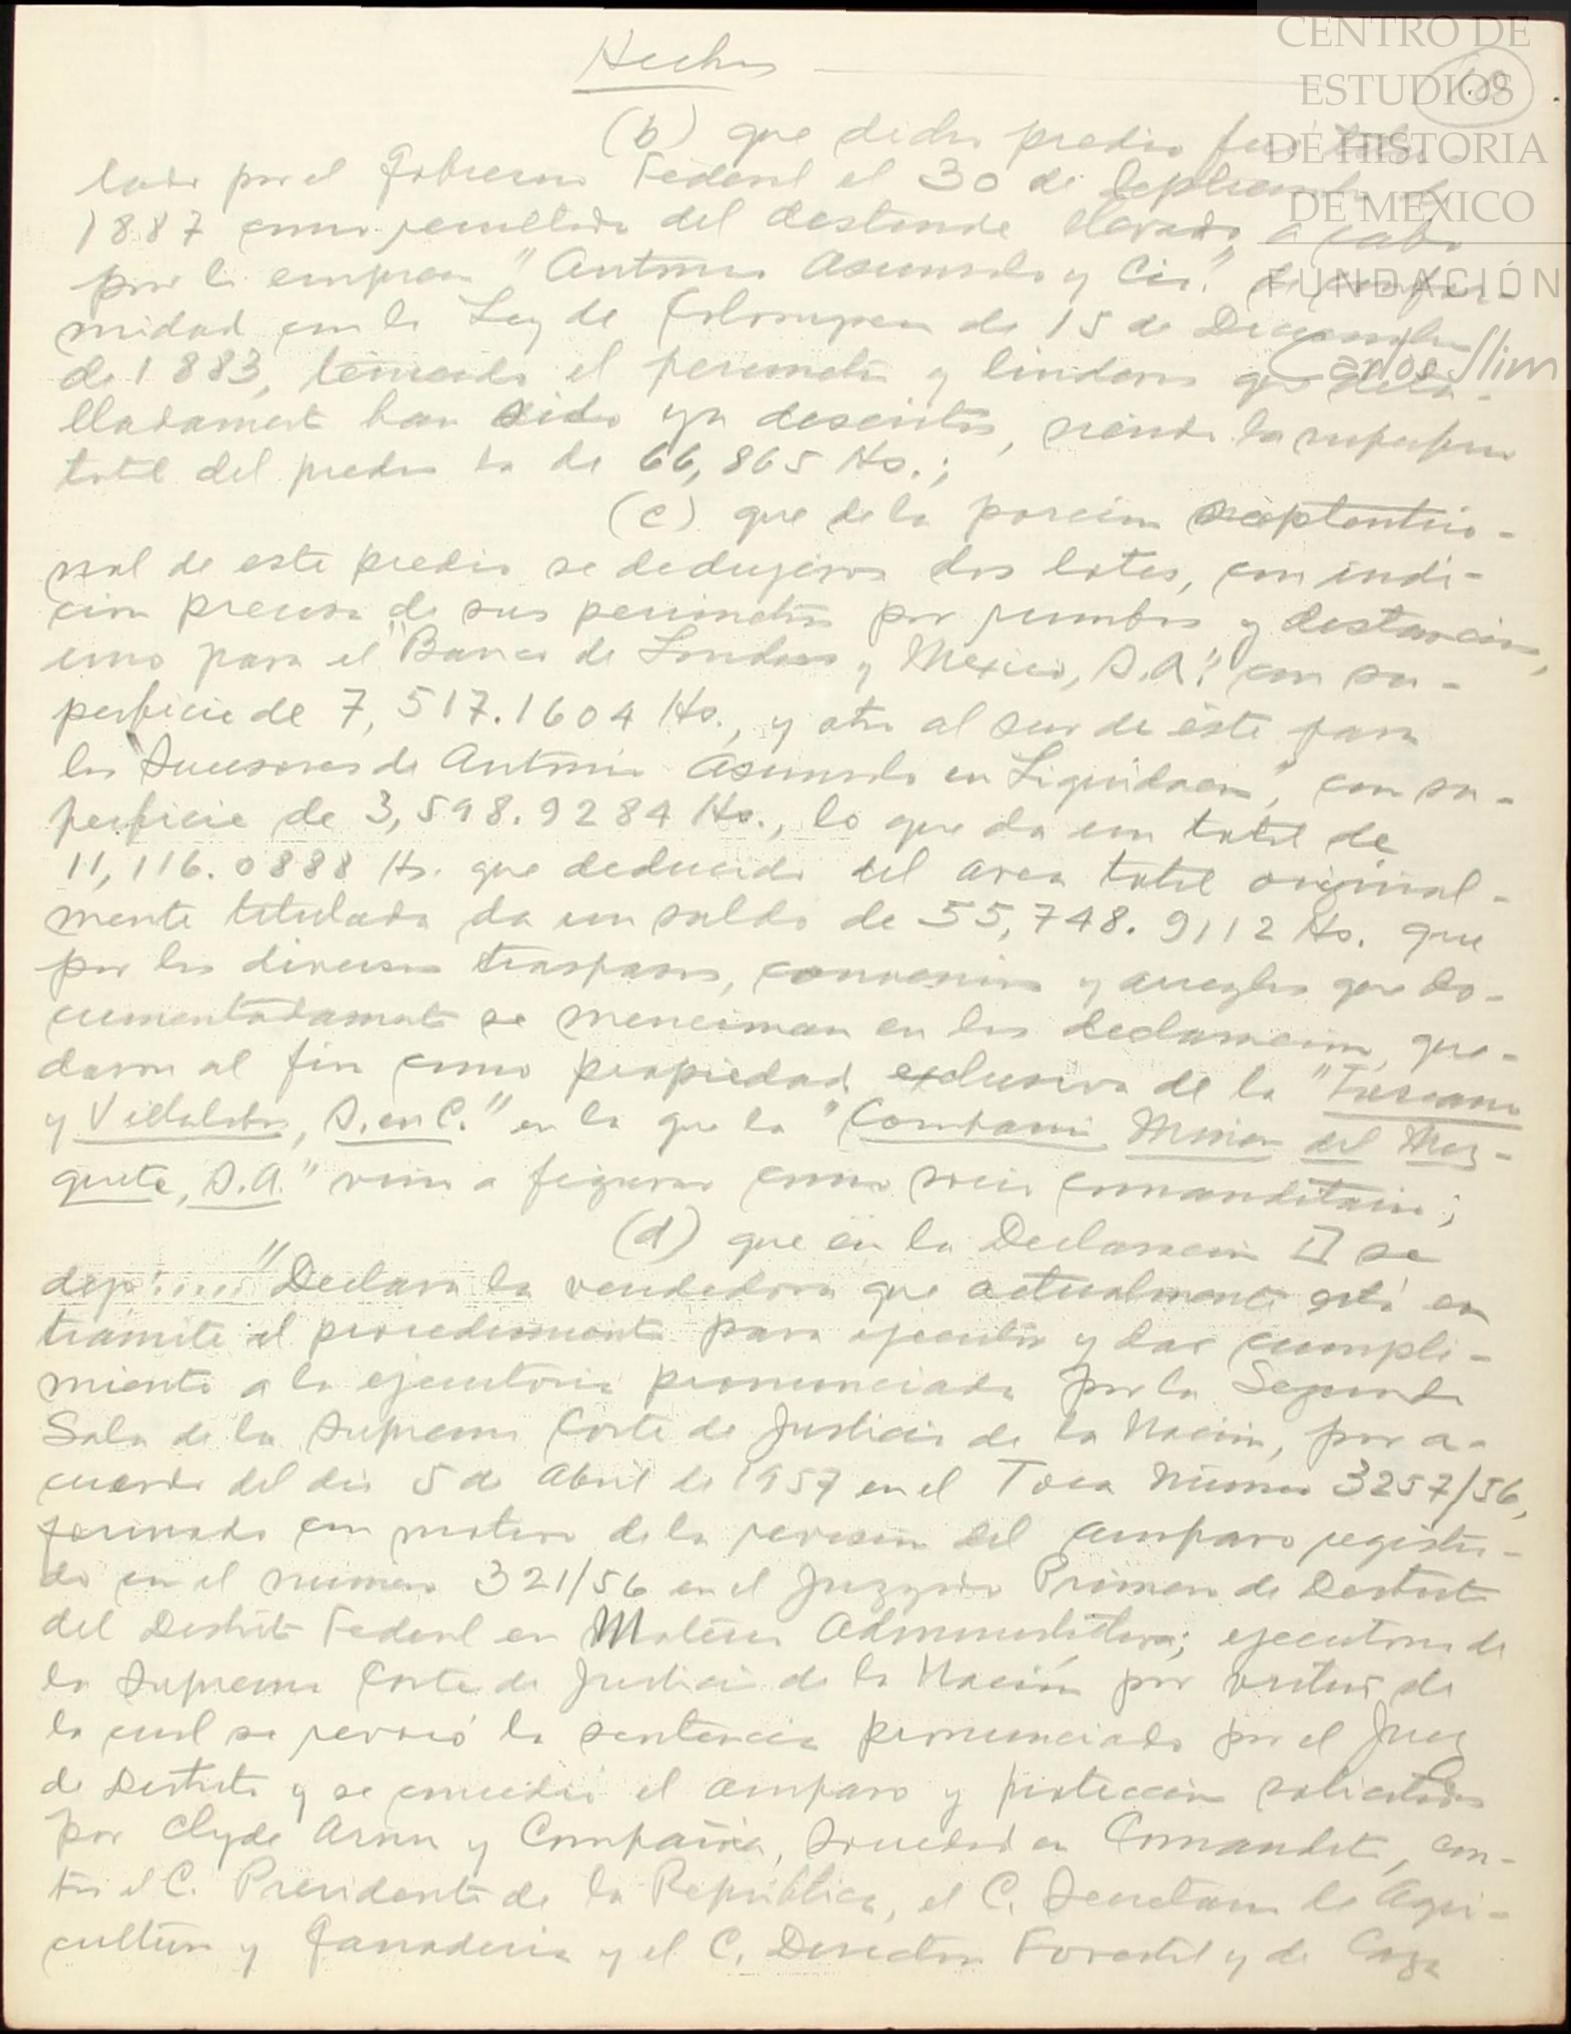 Hechos
CENTRO DE
ESTUDIOS
DE HISTORIA
DE MEXICO
FUNDACIÓN
Carlos Slim
(b) que dicho predio fué titu-
lado por el Gobierno Federal el 30 de Septiembre de
1887 como resultado del deslinde llevado a cabo
por la empresa "Antonio Asunsolo y Cia." de confor-
midad con la Ley de Colonizacion de 15 de Diciembre
de 1883, teniendo el perimetro y linderos que deta-
lladamente han sido ya descritos, siendo la superficie
total del predio la de 66,865 Hs.;
(c) que de la porcion septentrio-
nal de este predio se dedujeron dos lotes, con indi-
cion precisa de sus perimetros por rumbos y distancias,
uno para el "Banco de Londres y Mexico, S.A." con su-
perficie de 7,517.1604 Hs., y otro al sur de éste para
los "Sucesores de Antonio Asunsolo en Liquidacion", con su-
perficie de 3,598.9284 Hs., lo que da un total de
11,116.0888 Hs. que deducido del area total original-
mente titulada da un saldo de 55,748.9112 Hs. que
por los diversos traspasos, convenios y arreglos que do-
cumentadamente se mencionan en las declaracion, que-
daron al fin como propiedad exclusiva de la "
y Villalobos, S. en C." en la que la "Compañia Minera del Mez-
quite, S.A." vino a figurar como socio comanditario;
(d) que en la Declaracion II se
dejo: .... "Declara la vendedora que actualmente está en
trámite el procedimiento para ejecutar y dar cumpli-
miento a la ejecutoria pronunciada por la Segunda
Sala de la Suprema Corte de Justicia de la Nacion, por a-
cuerdo del dia 5 de Abril de 1957 en el Toca Número 3257/56,
formado con motivo de la revision del amparo registra-
do en el número 321/56 en el Juzgado Primero de Distrito
del Distrito Federal en Materia Administrativa; ejecutoria de
la Suprema Corte de Justicia de la Nación por virtud de
la cual se revocó la sentencia pronunciada por el Juez
de Distrito y se concedió el amparo y proteccion solicitados
por Clyde y Compañia, Sociedad en Comandita, con-
tra el C. Presidente de la República, el C. Secretario de Agri-
cultura y Ganaderia y el C. Director Forestal y de Caza